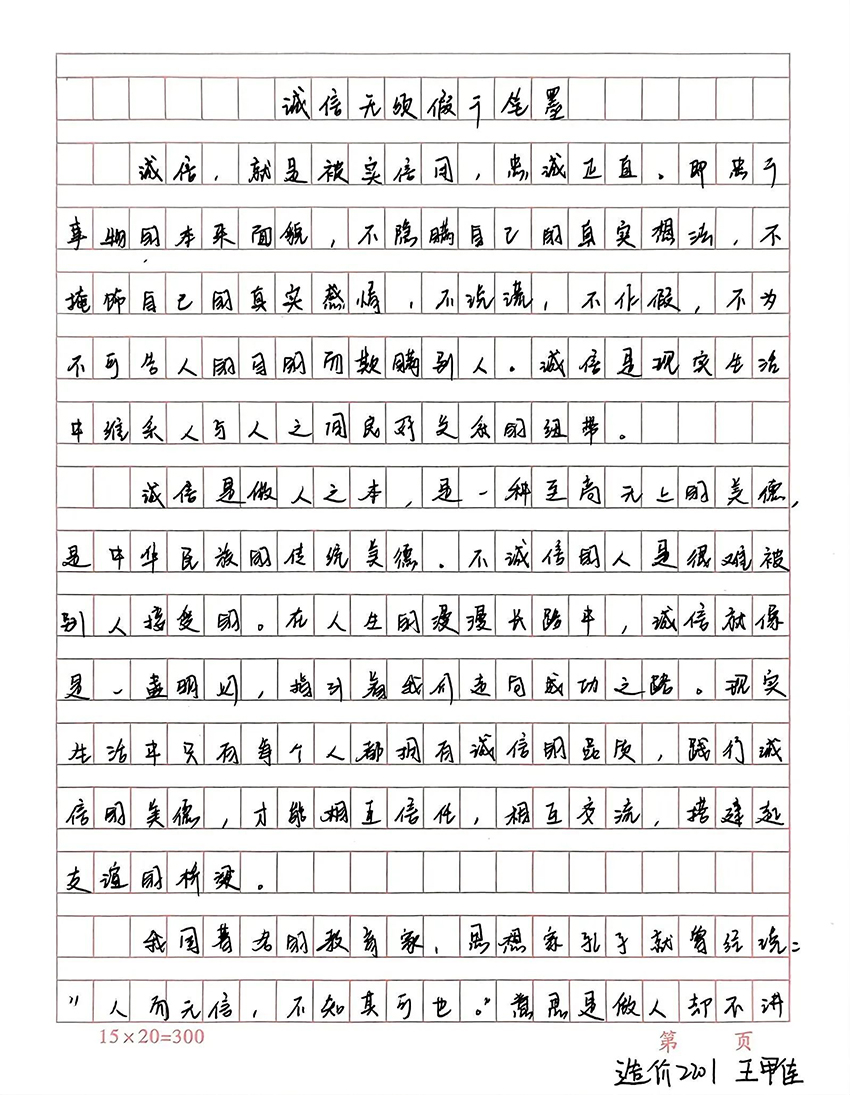 诚信无须假于笔墨
诚信，就是被实信用，忠诚正直。即忠于
事物的本来面貌，不隐瞒自己的真实想法，不
掩饰自己的真实感情，不说谎，不作假，不为
不可告人的目的而欺瞒别人。诚信是现实生活
中维系人与人之间良好关系的纽带。
诚信是做人之本，是一种至高无上的美德，
是中华民族的传统美德。不诚信的人是很难被
别人接受的。在人生的漫漫长路中，诚信就像
是一盏明灯，指引着我们走向成功之路。现实
生活中只有每个人都拥有诚信的品质，践行诚
信的美德，才能相互信任，相互交流，搭建起
友谊的桥梁。
我国著名的教育家，思想家孔子就曾经说：
“人而无信，不知其可也。”意思是做人却不讲
15×20=300
第 页
造价2201 王甲佳